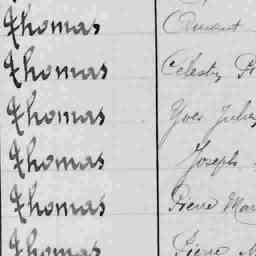 Thomas
Thomas Célestin
Thomas Yves Julien
Thomas Joseph
Thomas Pierre Mar
Thomas Pierre